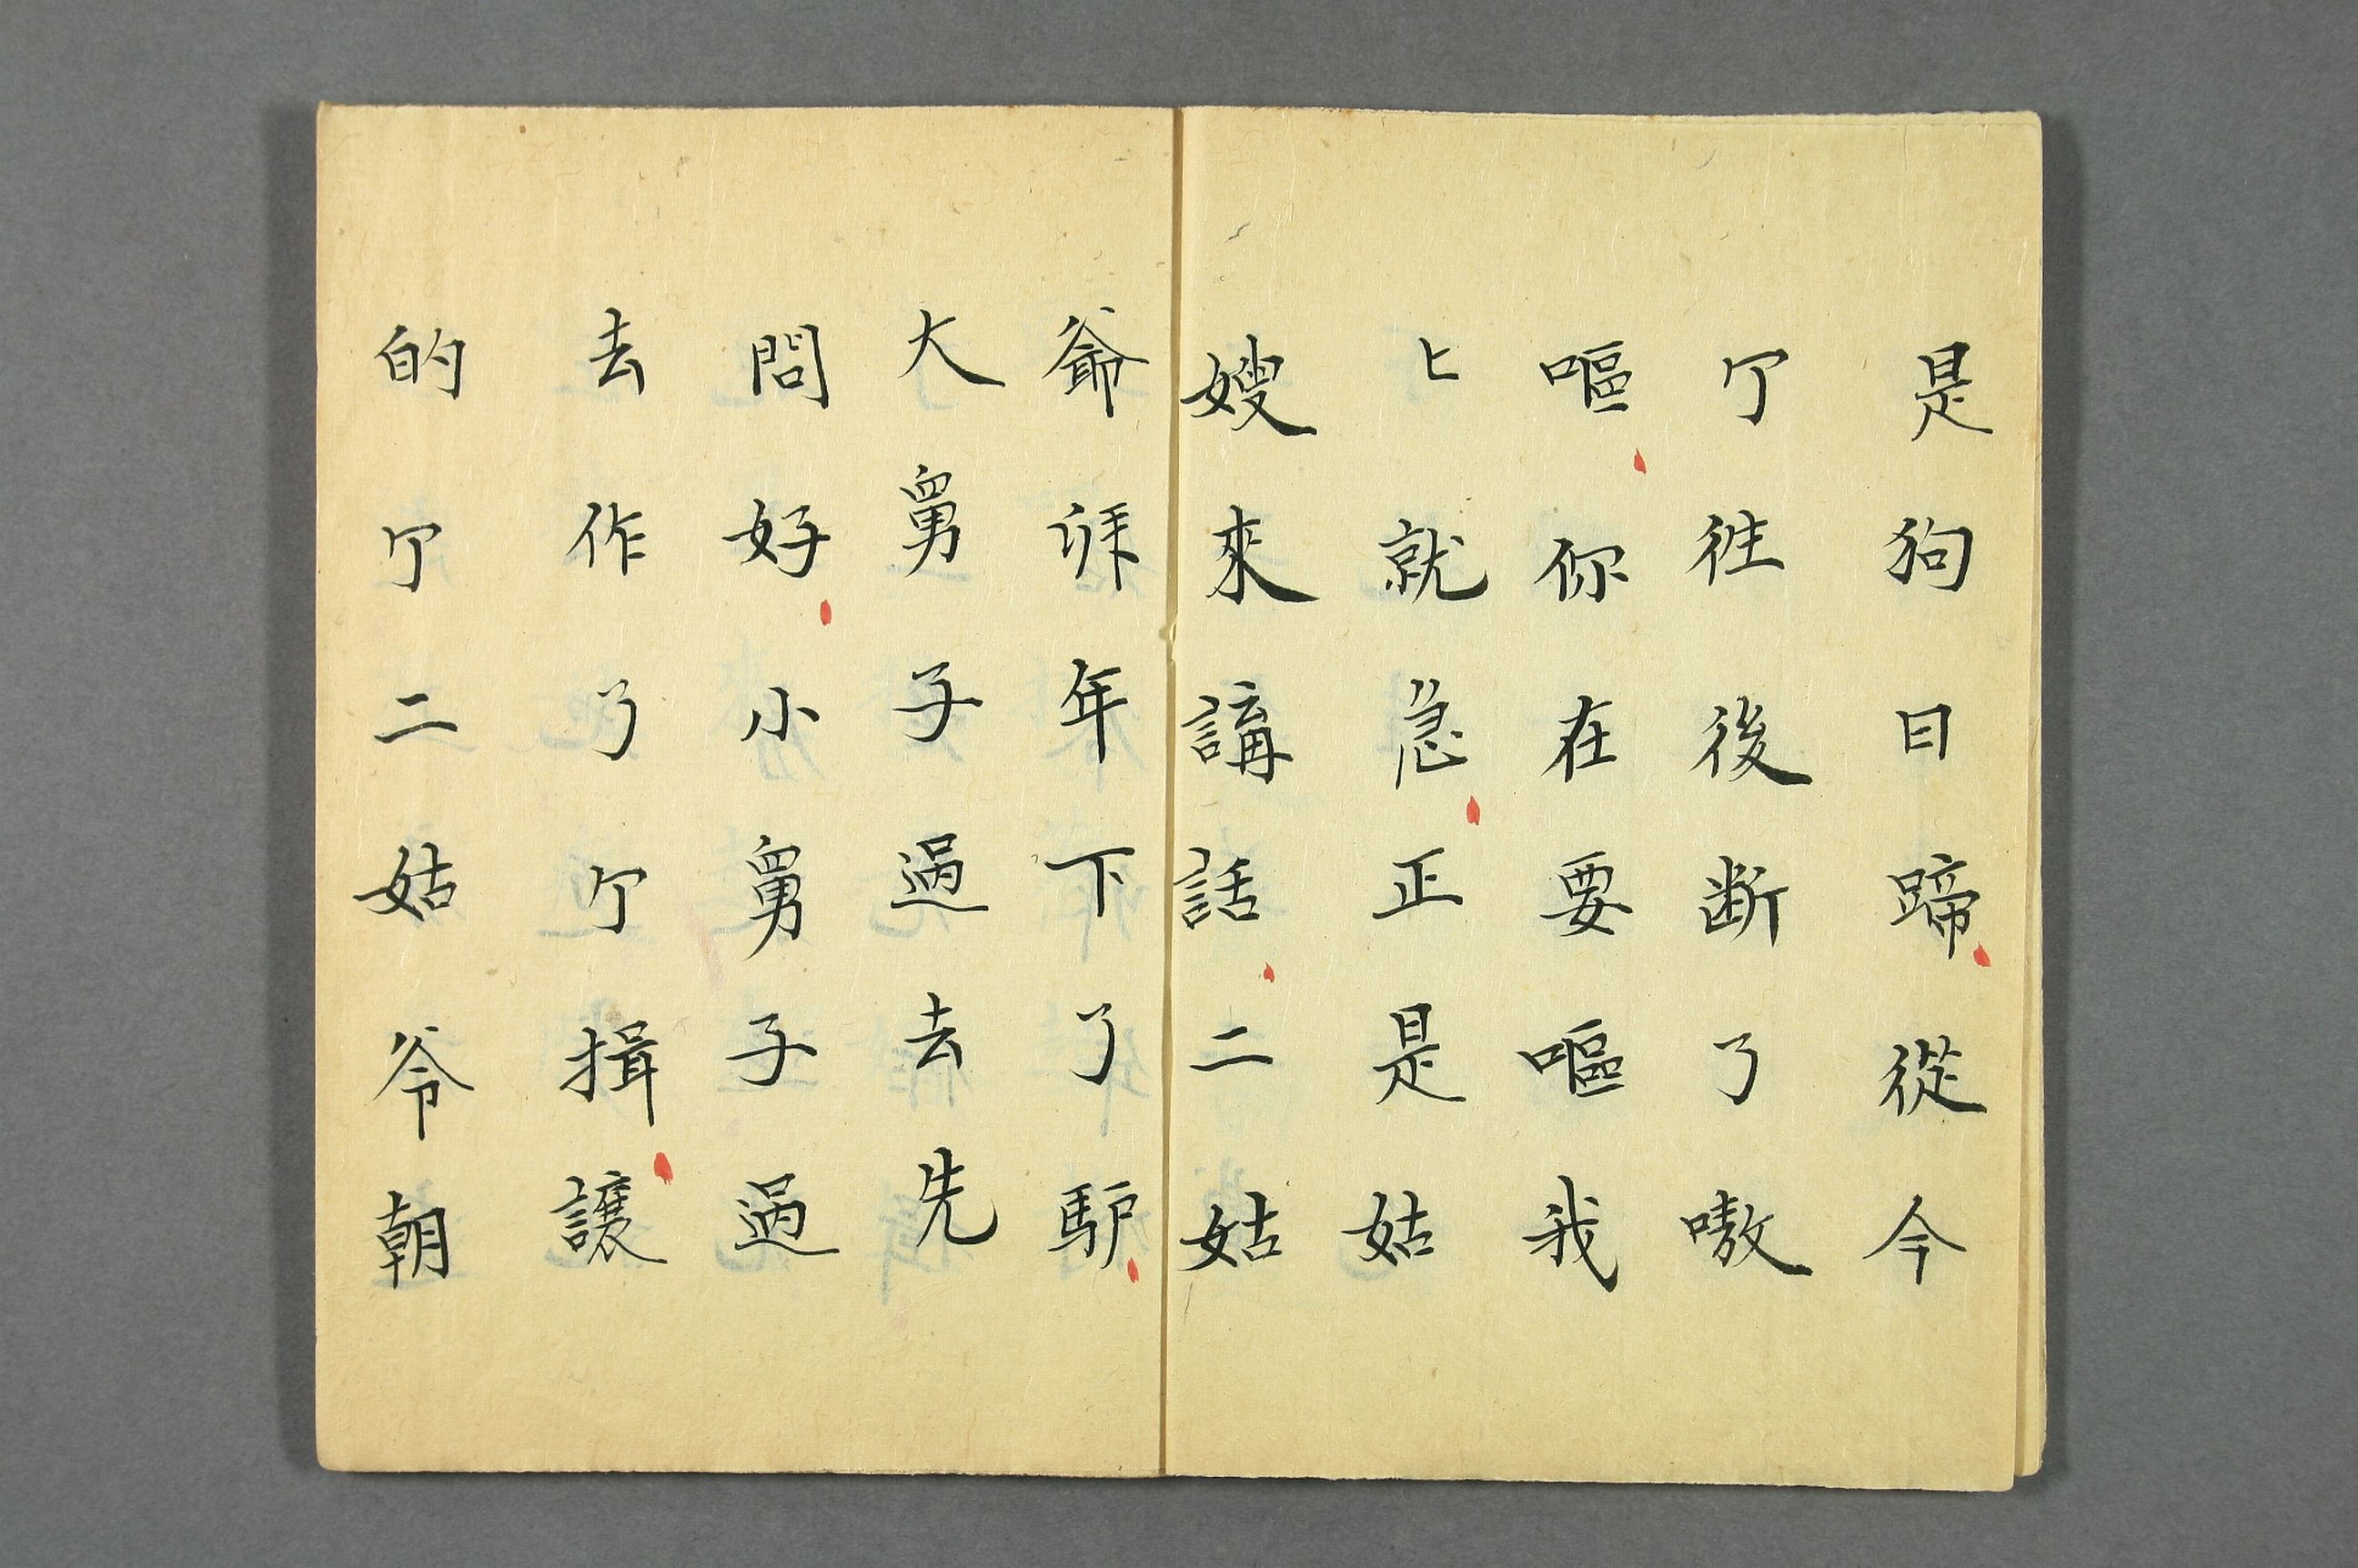 是狗日蹄從今
亇徃後断了嗷
嘔你在要嘔我
匕就急正是姑
嫂來講話二姑
爺拜年下了馿
大舅子過去先
問好小舅子過
去作了亇揖讓
的亇二姑爷朝